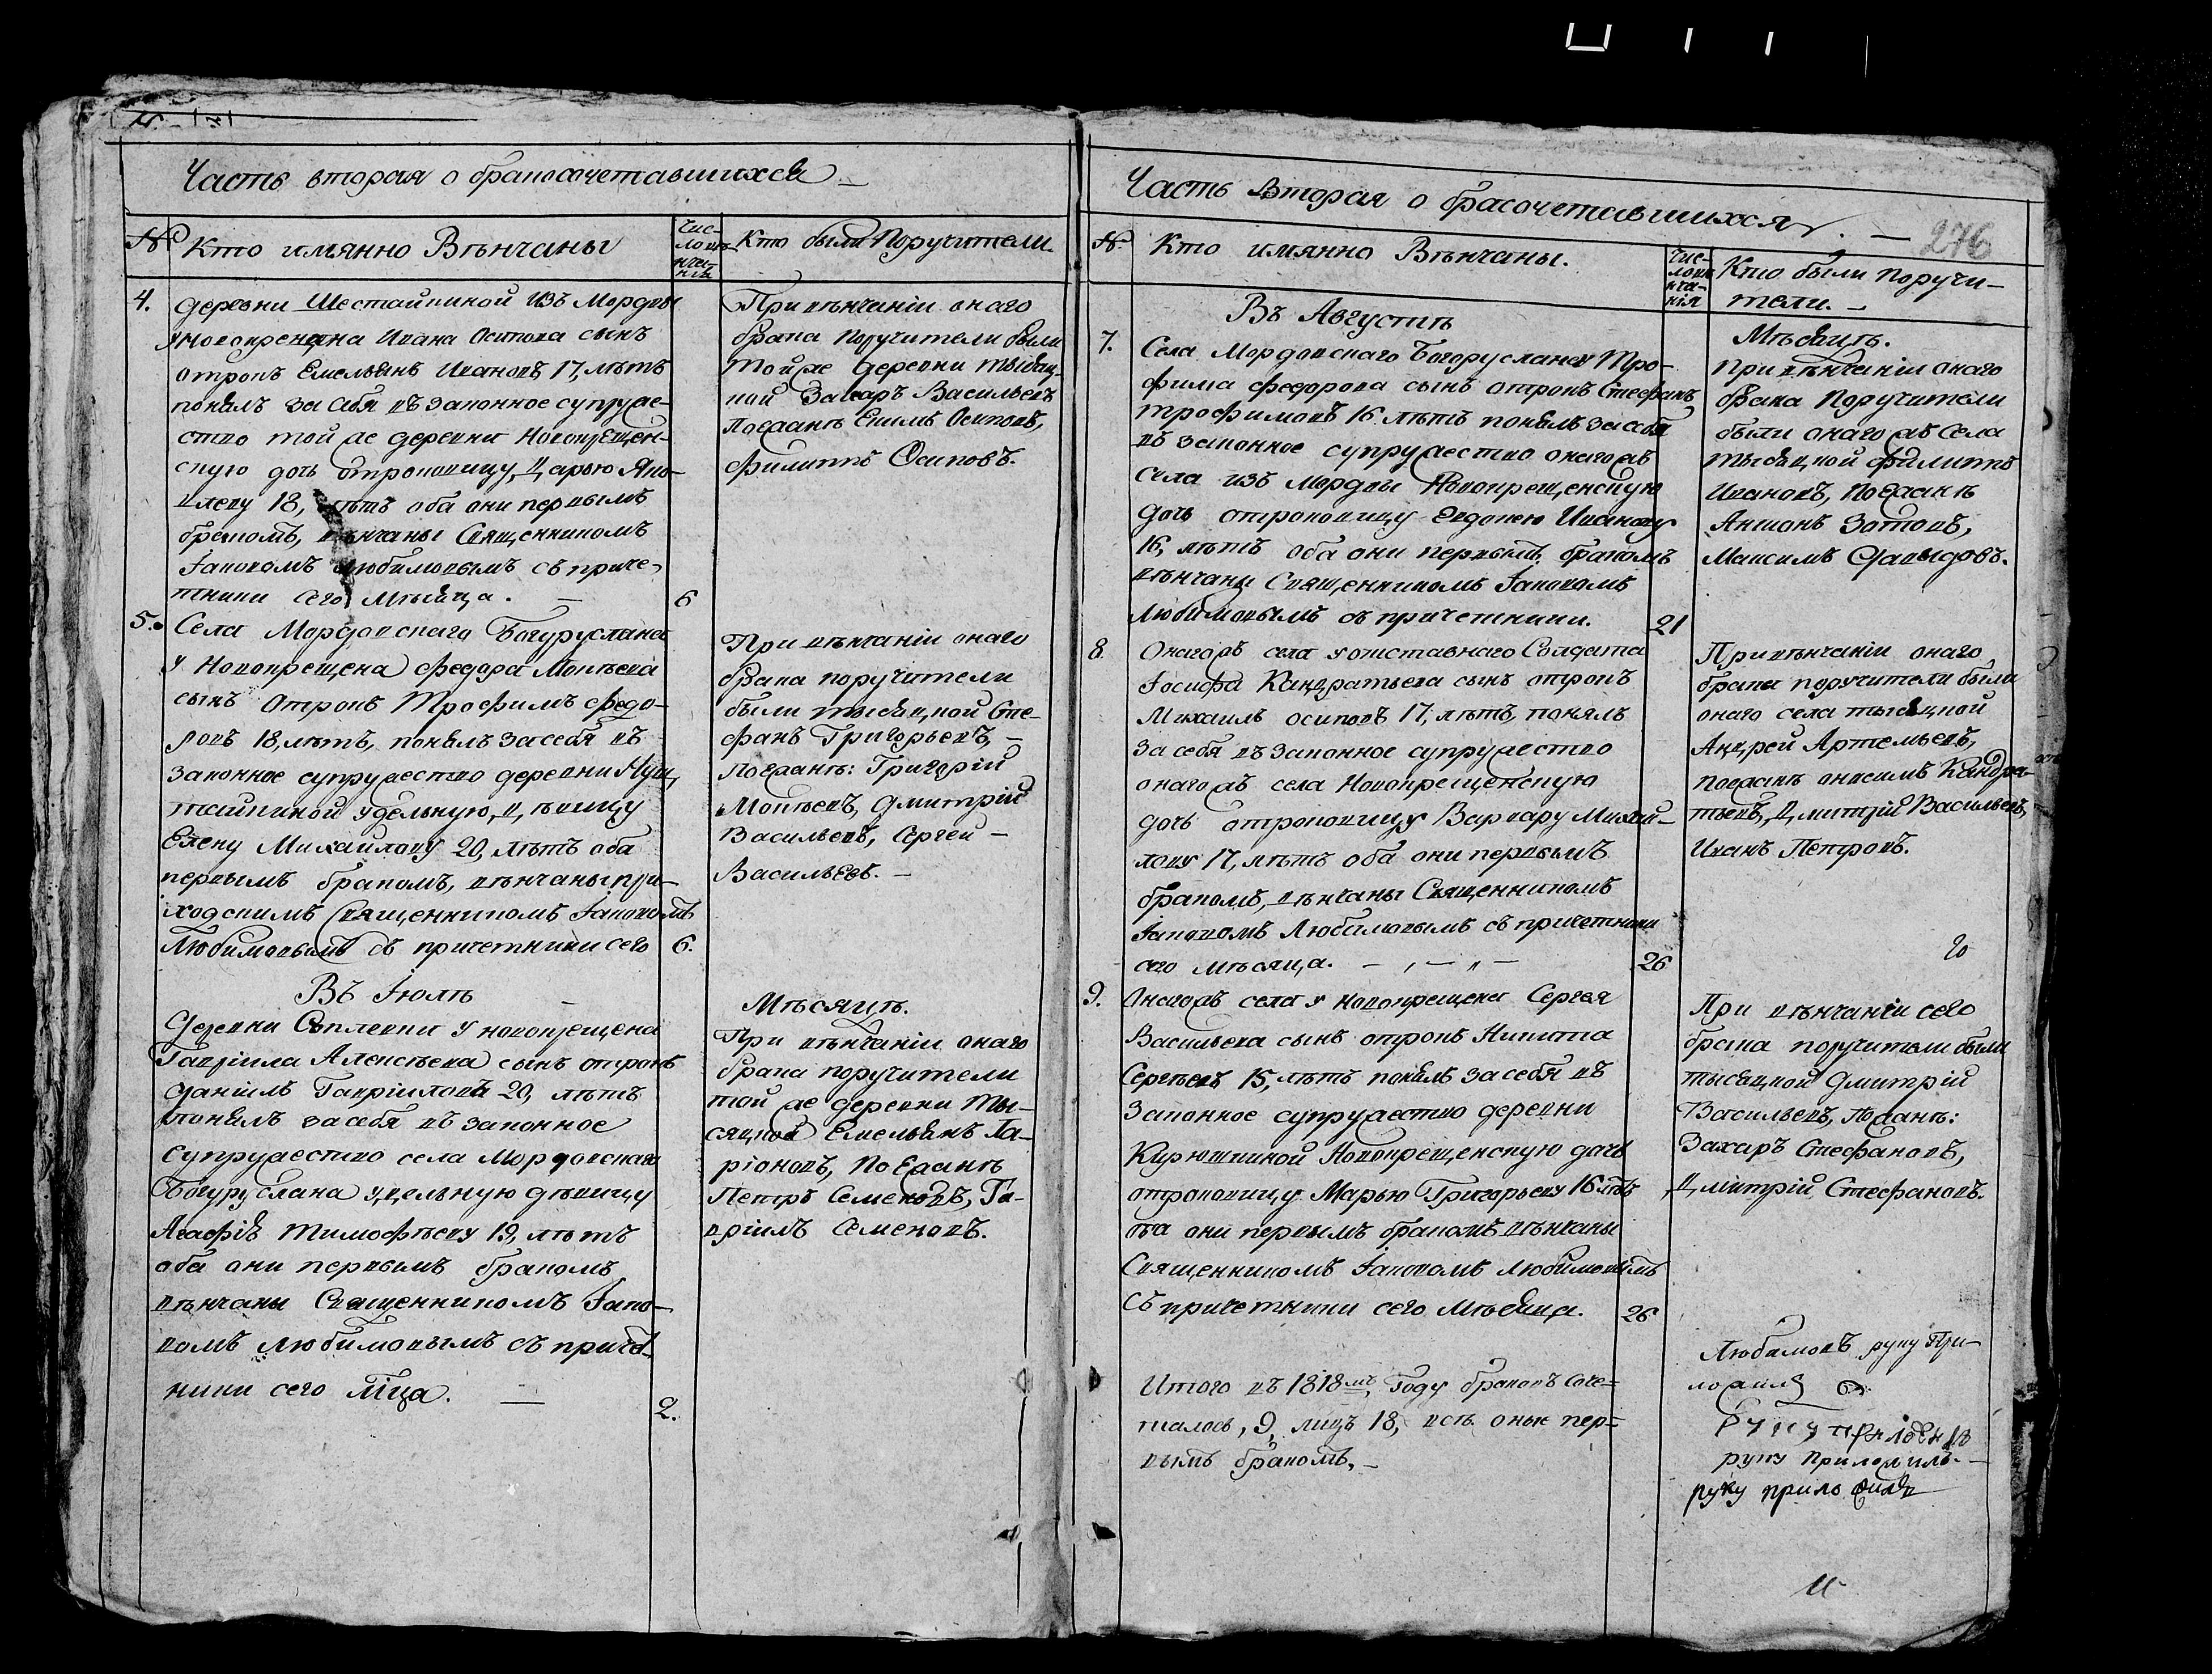 Часть вторая о бракосочетавшихся
№
Кто имянно Вѣнчаны
Чис-
ло вѣ-
нча-
нія
Кто были Поручители.
4.
деревни Шестайкиной изъ Мордвы
у новокрещена Ивана Осипова сынъ
отрокъ Емельянъ Ивановъ 17, лѣтъ
понялъ за себя въ законное супруже-
ство той же деревни Новокрещен-
скую дочь отроковицу, Дарью Яко-
влеву 18, лѣтъ оба они первымъ
бракомъ, вѣнчаны Священникомъ
Іаковомъ Любимовымъ съ приче-
тники сего Мѣсяца.
6
При вѣнчаніи онаго
брака Поручители были
той же деревни тысяц-
кой Захаръ Васильевъ
Поезжанѣ Екимъ Осиповъ,
Филиппъ Осиповъ.
5.
Села Мордовскаго Бугуруслана
у Новокрещена Федора Мокѣева
сынъ Отрокъ Трофимъ Федо-
ровъ 18, лѣтъ, понялъ за себя въ
законное супружество деревни Нуш,
тайкиной удѣльную, дѣвицу
Елену Михайлову 20, лѣтъ оба
первымъ бракомъ, вѣнчаны при-
ходскимъ Священникомъ Іаковомъ
Любимовымъ съ причетники сего
6.
При вѣнчаніи онаго
брака поручители
были тысяцкой Сте-
фанъ Григорьевъ, —
Поезжанѣ: Григорій
Мокѣевъ, Дмитрій
Васильевъ, Сергей —
Васильевъ. —
Въ Іюлѣ
Мѣсяцѣ.
Деревни Саплевки у новокрещена
Гавріила Алексѣева сынъ отрокъ
Даніилъ Гавріиловъ 20, лѣтъ
понялъ за себя въ законное
супружество села Мордовскаго
Бугуруслана удельную дѣвицу
Агафію Тимофѣеву 19, лѣтъ
оба они первымъ бракомъ
вѣнчаны Священникомъ Іако-
вомъ Любимовымъ съ причет-
ники сего мца.
2.
При вѣнчаніи онаго
брака поручители
той же деревни ты-
сяцкой Емельянъ Ла-
ріоновъ, Поезжанѣ
Петръ Семеновъ, Га-
вріилъ Семеновъ.
Часть Вторая о брасочетавшихся. —
276
№
Кто имянно Вѣнчаны.
Чис-
ло вѣ-
нча-
нія
Кто были поручи-
тели. —
Въ Августѣ
Мѣсяцѣ.
7.
Села Мордовскаго Богоруслана у Тро-
фима Федорова сынъ отрокъ Стефанъ
Трофимовъ 16 лѣтъ понялъ за себя
въ законное супружество онагожъ
села изъ Мордвы Новокрещенскую
дочь отроковицу Евдокею Иванову
16, лѣтъ оба они первымъ бракомъ
вѣнчаны Священникомъ Іаковомъ
Любимовымъ съ причетники.
21
При вѣнчаніи онаго
брака Поручители
были онаго жъ села
тысяцкой Филиппъ
Ивановъ, Поезжанѣ
Антонъ Зотовъ,
Максимъ Давыдовъ.
8
Онагожъ села у отставнаго Солдата
Іосифа Кандратьева сынъ отрокъ
Михаилъ Осиповъ 17, лѣтъ, понялъ
за себя въ законное супружество
онагожъ села Новокрещенскую
дочь отроковицу Варвару Михай-
лову 17, лѣтъ оба они первымъ
бракомъ, вѣнчаны Священникомъ
Іаковомъ Любимовымъ съ причетники
сего мѣсяца.
26
При вѣнчаніи онаго
брака поручители были
онаго села тысяцкой
Андрей Артемьевъ,
поезжанѣ Онисимъ Кандра-
тьевъ, Дмитрій Васильевъ,
Иванъ Петровъ.
9.
Онагожъ села у новокрещена Сергея
Васильева сынъ отрокъ Никита
Сергѣевъ 15, лѣтъ понялъ за себя въ
законное супружество деревни
Кирюшкиной Новокрещенскую дочь
отроковицу Марью Григорьеву 16 лѣтъ
оба они первымъ бракомъ вѣнчаны
Священникомъ Іаковомъ Любимовымъ
съ причетники сего мѣсяца.
26
При вѣнчаніи сего
брака поручители были
тысяцкой Дмитрій
Васильевъ, Поезжанѣ:
Захаръ Стефановъ,
Дмитрій Стефановъ.
Итого въ 1818мъ, Году браковъ соче-
талось, 9, лицъ 18, всѣ оные пер-
вымъ бракомъ. —
Любимовъ руку При-
ложилъ
руку приложилъ
руку приложилъ. —
руку приложилъ